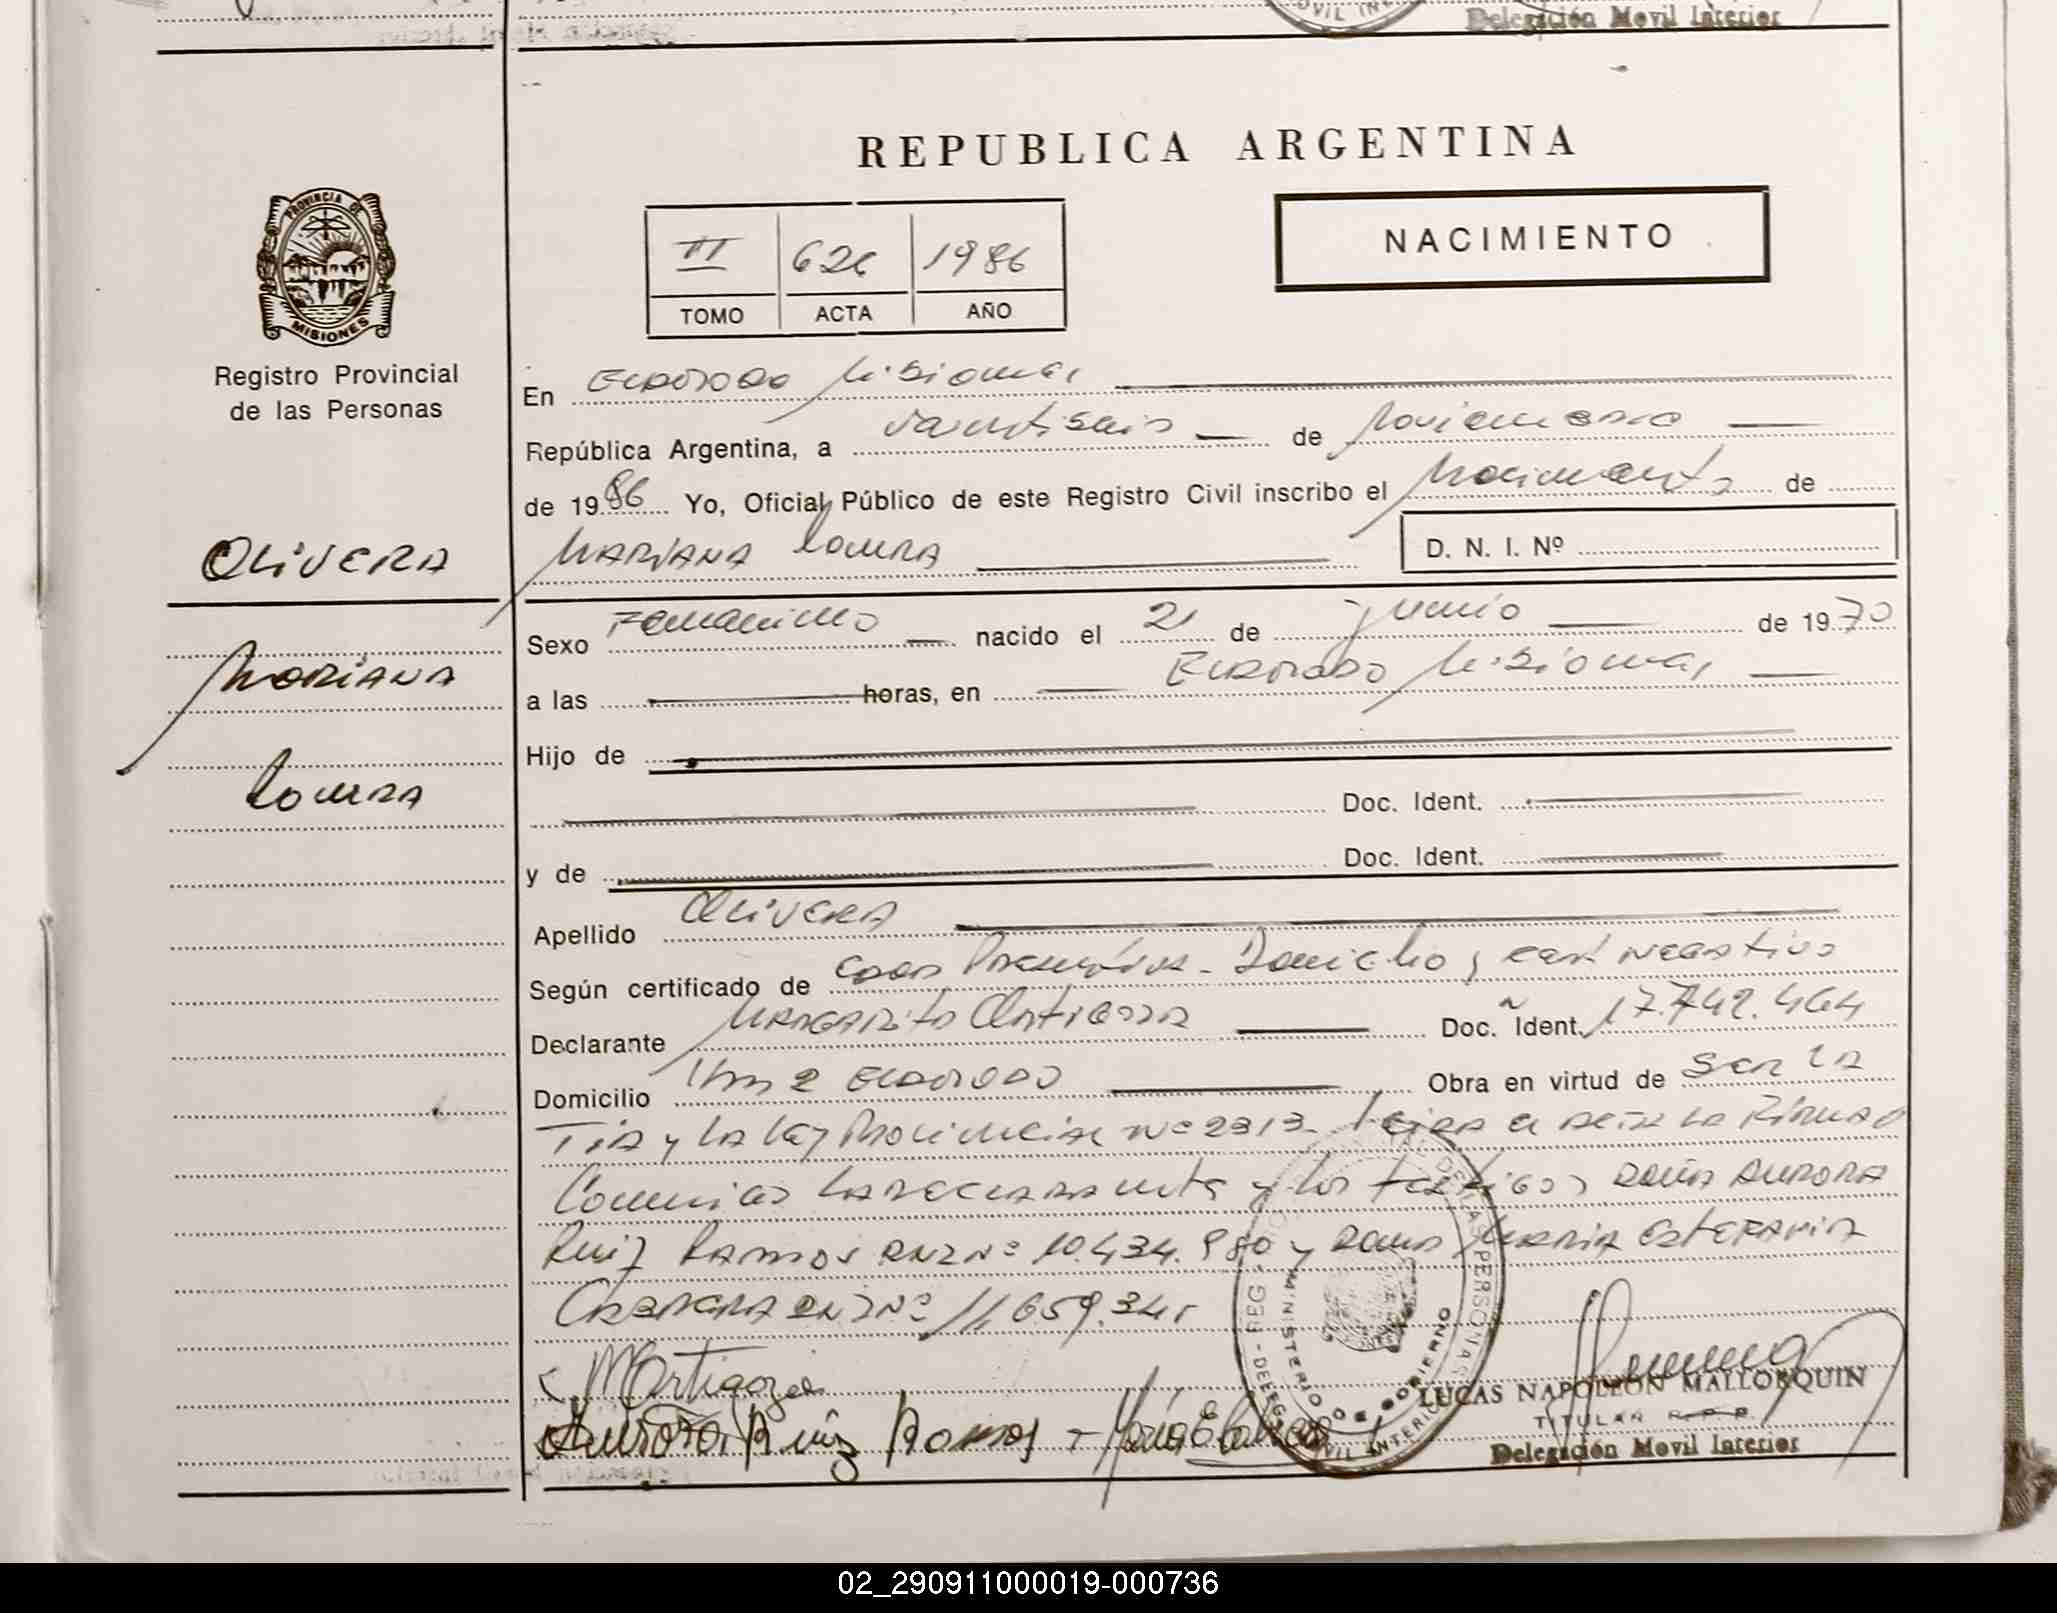 Delegación Movil Interior
REPUBLICA ARGENTINA
PROVINCIA DE
MISIONES
Registro Provincial
de las Personas
II 626 1986
TOMO ACTA AÑO
NACIMIENTO
En Eldorado Misiones
República Argentina, a veintiseis de Noviembre
de 1986 Yo, Oficial Público de este Registro Civil inscribo el Nacimiento de
OLIVERA
MARIANA
D. N. I. Nº
Sexo Femenino nacido el 21 de junio de 1970
MARIANA
a las horas, en Eldorado Misiones
Hijo de
Doc. Ident.
y de Doc. Ident.
Apellido OLIVERA
Según certificado de Domicilio y cert negativo
Declarante MARGARITA Doc. Ident. 17.742.464
Domicilio Km 2 Eldorado Obra en virtud de ser la
Tia y la ley Provincial Nº 2313. Leida el acta la Firman
Conmigo la declarante y los testigos doña AURORA
Ruiz Ramos DNI Nº 10.434.980 y doña Maria Estefania
Cabrera DNI Nº 11.659.341
Aurora Ruiz Ramos - María E
MINISTERIO DE GOBIERNO
LUCAS NAPOLEON MALLORQUIN
TITULAR R.P.P.
Delegación Movil Interior
02_290911000019-000736